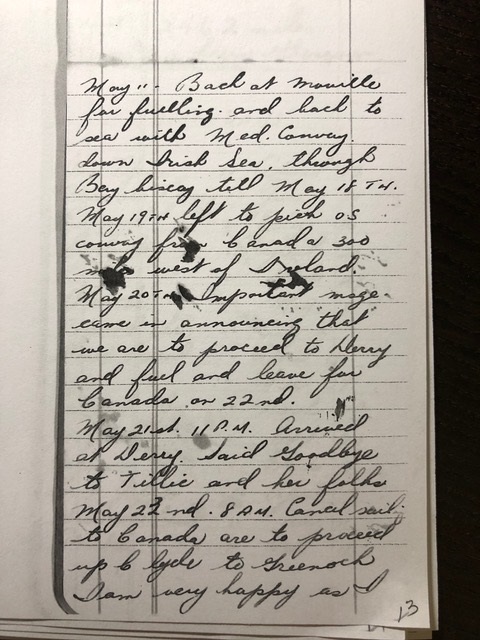 May 11 - Back at Moville
for fuelling. and back to
sea with Med. Convoy.
down Irish Sea. through
Bay biscay till May 18TH.
May 19TH left to pick OS
convoy from Canada 300
west of Ireland.
May 20TH Important msge
came in announcing that
we are to proceed to Derry
and fuel and leave for
Canada on 22nd.
May 21st. 11 P.M. Arrived
at Derry. Said Goodbye
to Tillie and her folks
May 22nd. 8 AM. Cancel sail
to Canada are to proceed
up Clyde to Greenock
I am very happy as I
13